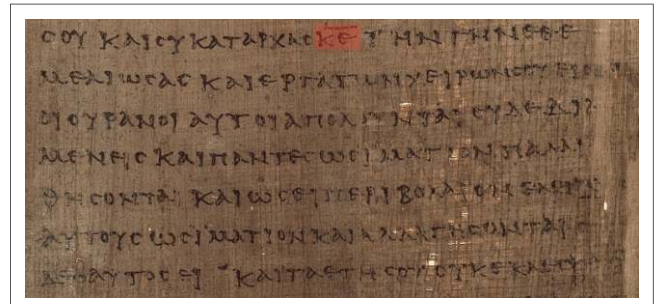 ϹΟΥ ΚΑΙϹΥΚΑΤΑΡΧΑϹΚ̅Ε̅ ΤΗΝΓΗΝΕΘΕ
ΜΕΛΙΩϹΑϹ ΚΑΙΕΡΓΑΤΩΝΧΕΙΡΩΝϹΟΥΕΙϹΙΝ
ΟΙΟΥΡΑΝΟΙ ΑΥΤΟΙΑΠΟΛΟΥΝΤΑΙ ϹΥΔΕΔΙΑ
ΜΕΝΕΙϹ ΚΑΙΠΑΝΤΕϹΩϹΙΜΑΤΙΟΝΠΑΛΑΙ
ΩΘΗϹΟΝΤΑΙ ΚΑΙΩϹΕΙΠΕΡΙΒΟΛΑΙΟΝ
ΑΥΤΟΥϹΩϹΙΜΑΤΙΟΝΚΑΙΑΛΛΑΓΗϹΟΝΤΑΙ
ΔΕΟΑΥΤΟϹΕΙ ΚΑΙΤΑΕΤΗϹΟΥΟΥΚ